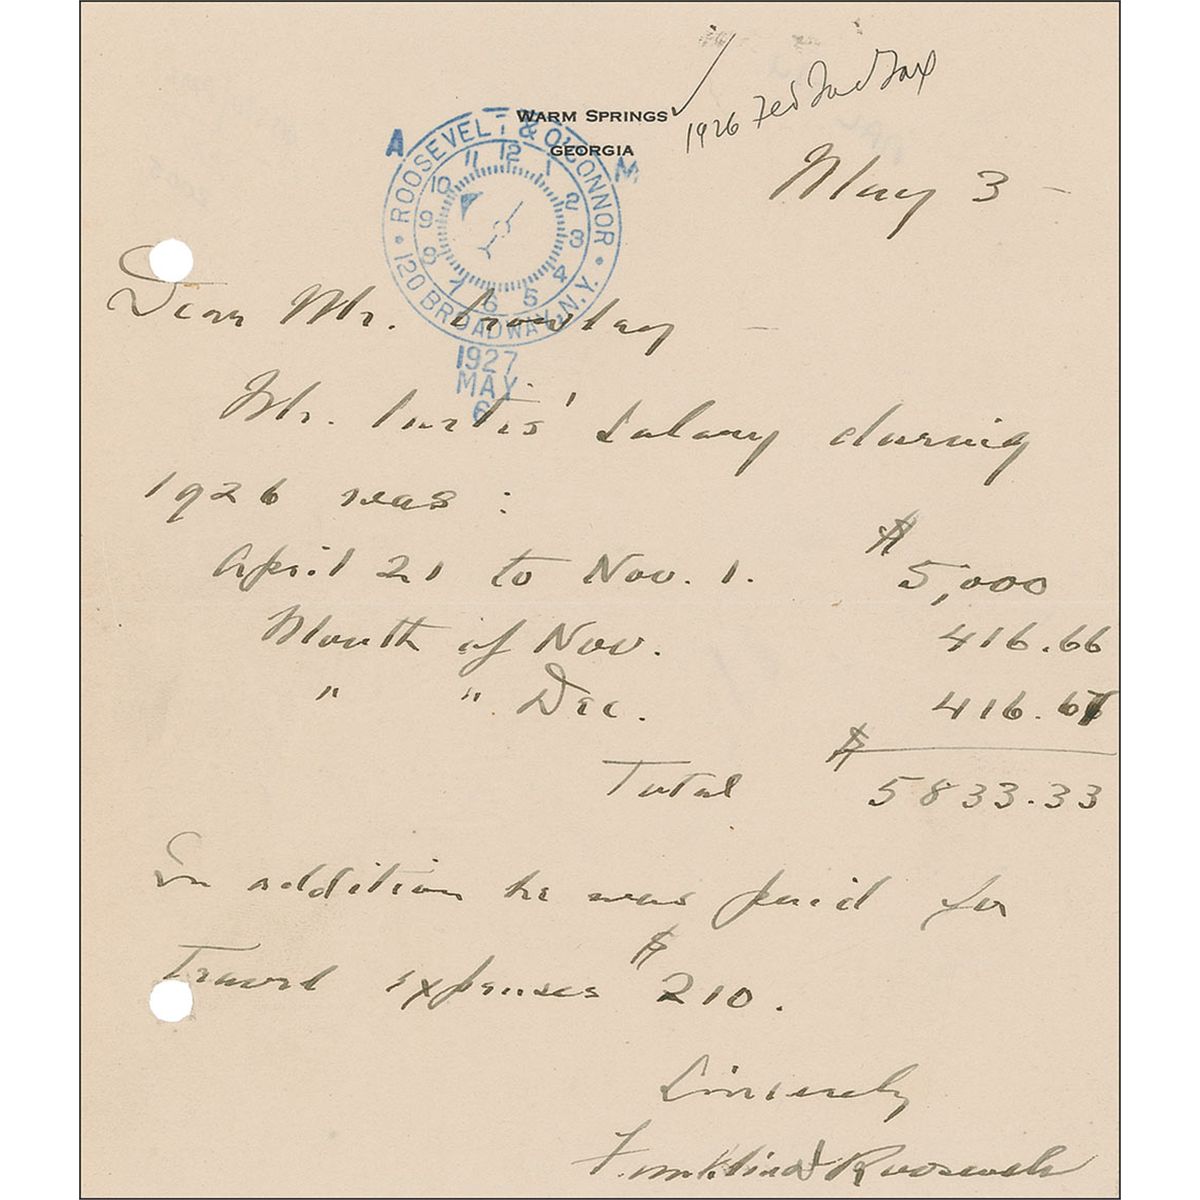 WARM SPRINGS
GEORGIA
1926 Fed Ind Tax
A M
ROOSEVELT & O'CONNOR
120 BROADWAY, N.Y.
12 1 2 3 4 5 6 7 8 9 10 11
1927
MAY
6
May 3 –
Dear Mr. Crowley –
Mr. Curtis' salary during
1926 was :
April 21 to Nov. 1. $ 5,000
Month of Nov. 416.66
" " Dec. 416.67
Total $ 5833.33
In addition he was paid for
travel expenses $210.
Sincerely
Franklin D Roosevelt